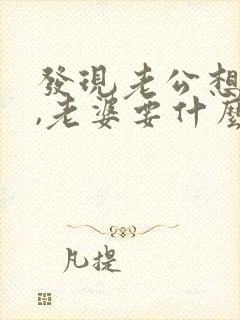 發現老公想
,老婆要什麼
凡提